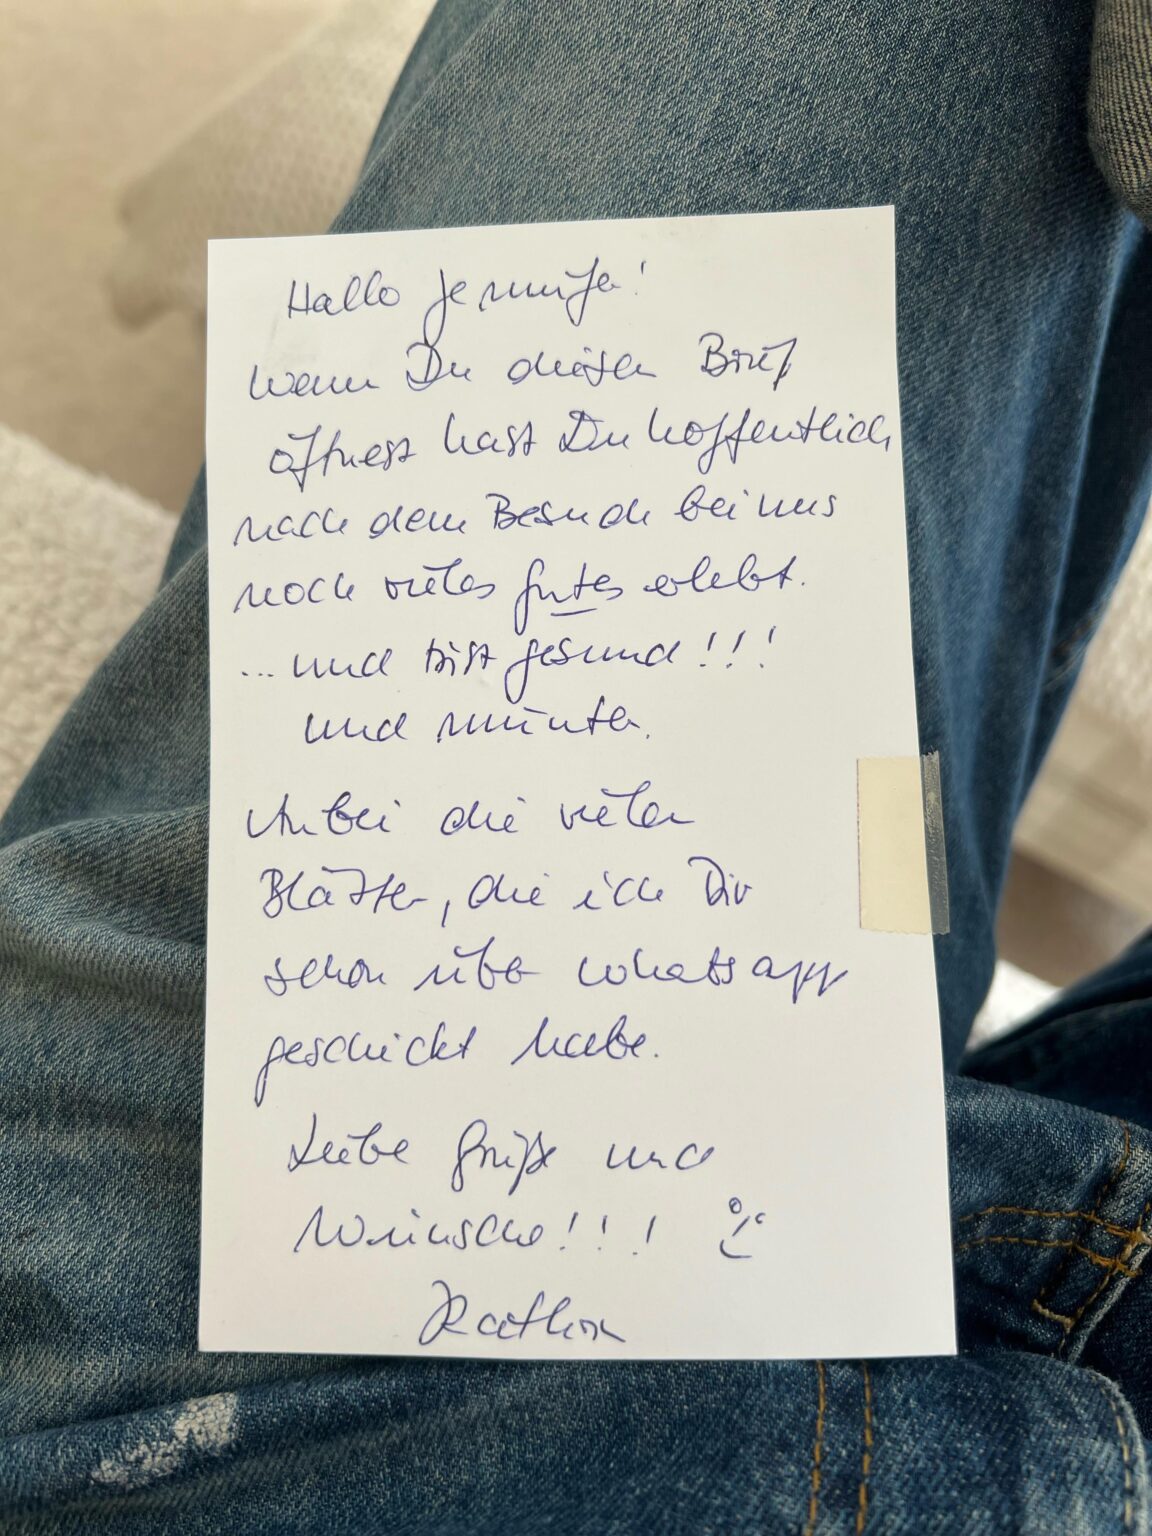 Hallo Jennifer!
wenn Du diesen Brief
öffnest hast Du hoffentlich
nach dem Besuch bei uns
noch vieles gutes erlebt.
... und bist gesund!!!
und munter.
Anbei die vielen
Blätter, die ich Dir
schon über Whatsapp
geschickt habe.
Liebe Grüße und
Wünsche!!!